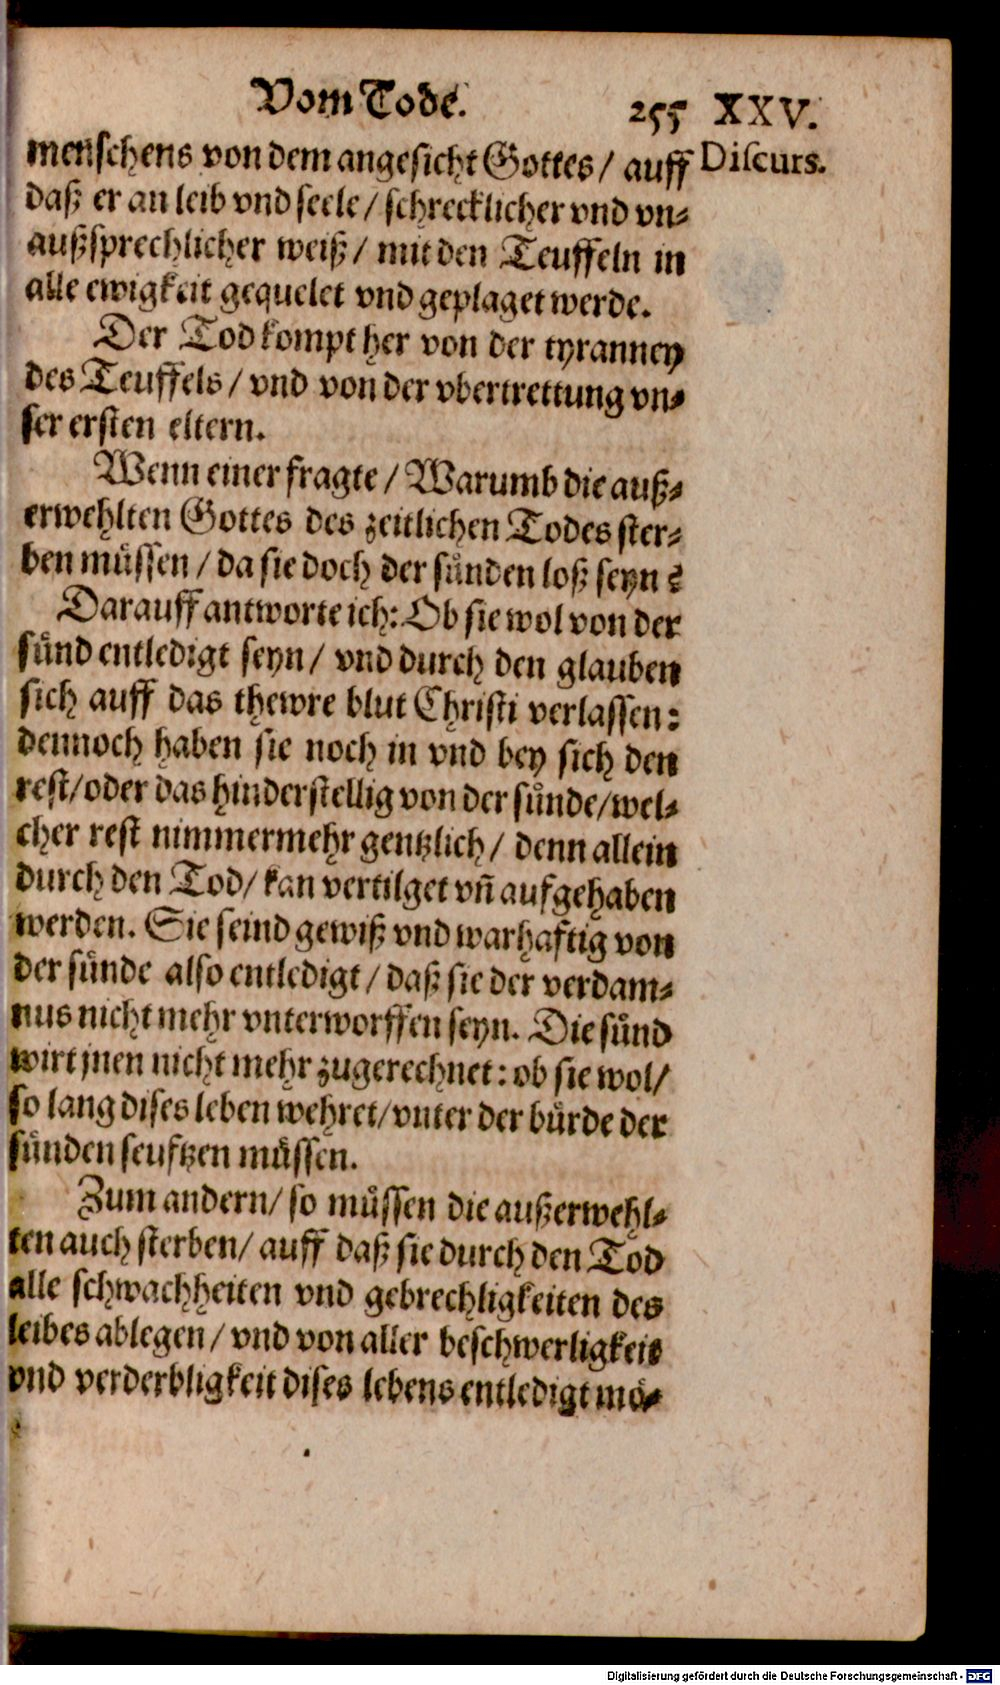 Vom Tode.
255 XXV.
Discurs.
menschens von dem angesicht Gottes / auff
daß er an leib vnd seele / schrecklicher vnd vn⸗
außsprechlicher weiß / mit den Teuffeln in
alle ewigkeit gequelet vnd geplaget werde.
Der Tod kompt her von der tyranney
des Teuffels / vnd von der vbertrettung vn⸗
ser ersten eltern.
Wenn einer fragte / Warumb die auß⸗
erwehlten Gottes des zeitlichen Todes ster⸗
ben müssen / da sie doch der sünden loß seyn?
Darauff antworte ich: Ob sie wol von der
sünd entledigt seyn / vnd durch den glauben
sich auff das thewre blut Christi verlassen:
dennoch haben sie noch in vnd bey sich den
rest / oder das hinderstellig von der sünde / wel⸗
cher rest nimmermehr gentzlich / denn allein
durch den Tod / kan vertilget vñ aufgehaben
werden. Sie seind gewiß vnd warhaftig von
der sünde also entledigt / daß sie der verdam⸗
nus nicht mehr vnterworffen seyn. Die sünd
wirt jnen nicht mehr zugerechnet: ob sie wol /
so lang dises leben wehret / vnter der bürde der
sünden seuftzen müssen.
Zum andern / so müssen die außerwehl⸗
ten auch sterben / auff daß sie durch den Tod
alle schwachheiten vnd gebrechligkeiten des
leibes ablegen / vnd von aller beschwerligkeit
vnd verderbligkeit dises lebens entledigt mö⸗
Digitalisierung gefördert durch die Deutsche Forschungsgemeinschaft - DFG